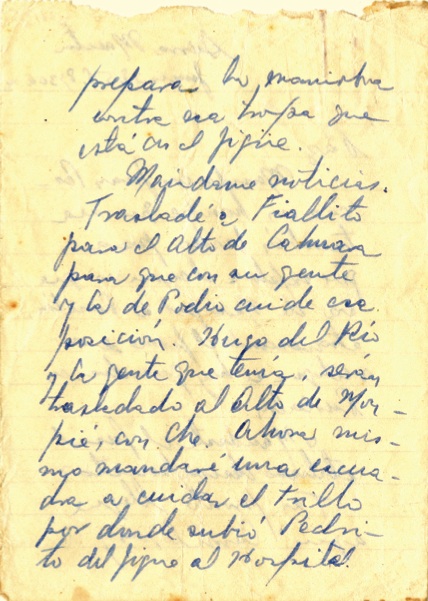 prepara la maniobra
contra esa tropa que
está en el Jigüe.
Mándame noticias.
Trasladé a Fiallito
para el Alto de Cahuara
para que con su gente
y la de Pedro cuide esa
posición. Hugo del Río
y la gente que tenía, serán
trasladado al Alto de Mom-
pié, con Che. Ahora mis-
mo mandaré una escua-
dra a cuidar el trillo
por donde subió Pedri-
to del Jigue al Hospital.